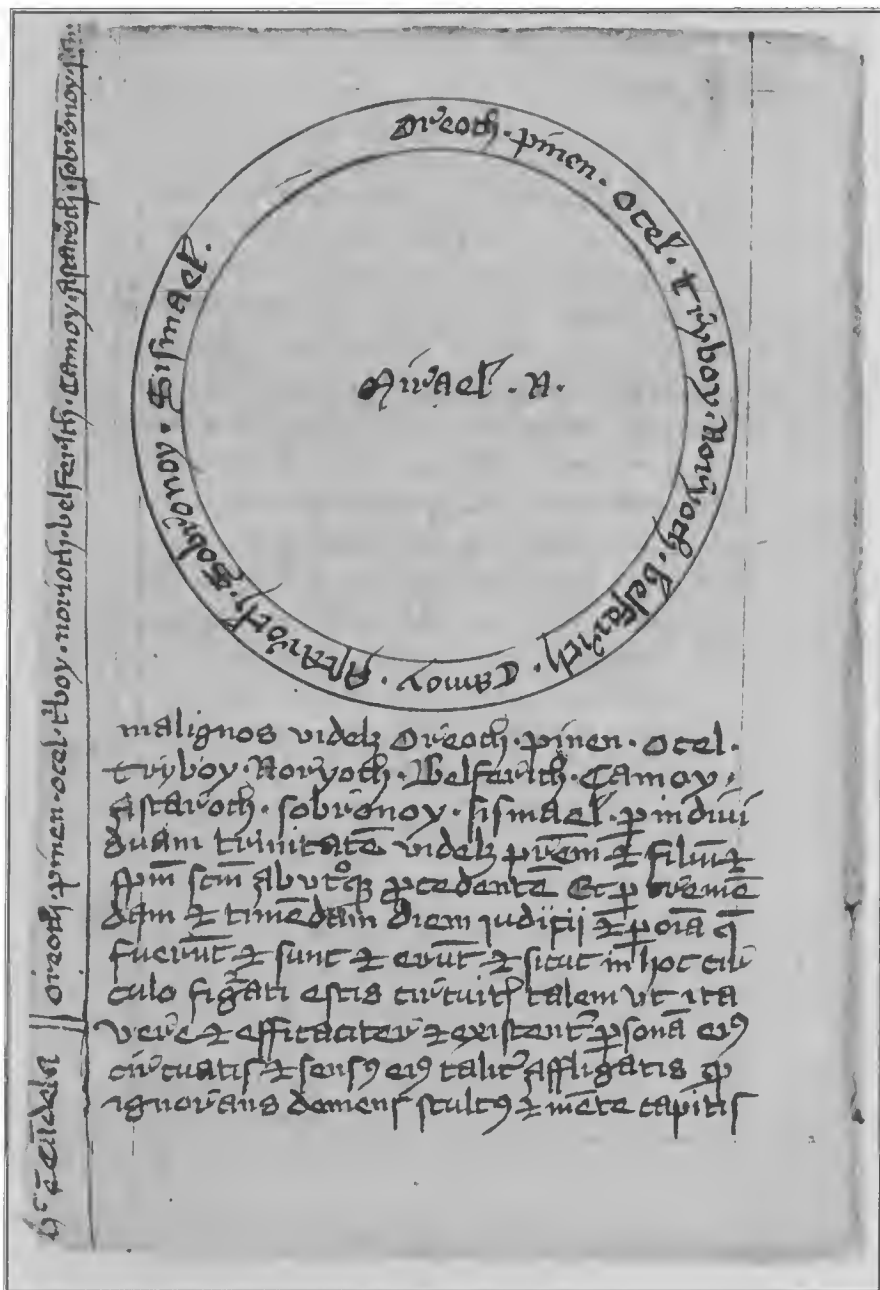 Oreoth · pinen · Ocel · Tryboy · Noryoth · belferith · Camoy · Astaroth · Sobronoy · Sismael ·
Mirael · N ·
malignos videlꝫ Oreoth · pinen · Ocel ·
Tryboy · Noryoth · Belferith · Camoy ·
Astaroth · sobronoy · sismael · ꝑ indiui
duam trinitatē videlꝫ pr̄em ⁊ filiū ⁊
sp̄m sc̄m ab vtͦqꝫ ꝓcedentē Et ꝑ tremē
dam ⁊ timēdam diem iudicii ⁊ ꝑ oīa q̄
fuerūt ⁊ sunt ⁊ erūt ⁊ sicut in hoc cir
culo figͣati estis circuitꝰ talem vt ita
vere ⁊ efficaciter ⁊ existentͬ ꝑsonā eiꝰ
circuatis ⁊ sensꝰ eiꝰ talitͬ affligatis ꝙ
ignorans demens stultꝰ ⁊ mēte capitis
oreoth · pinen · ocel · tͥboy · norioth · belferith · camoy · astaroth · sobronoy